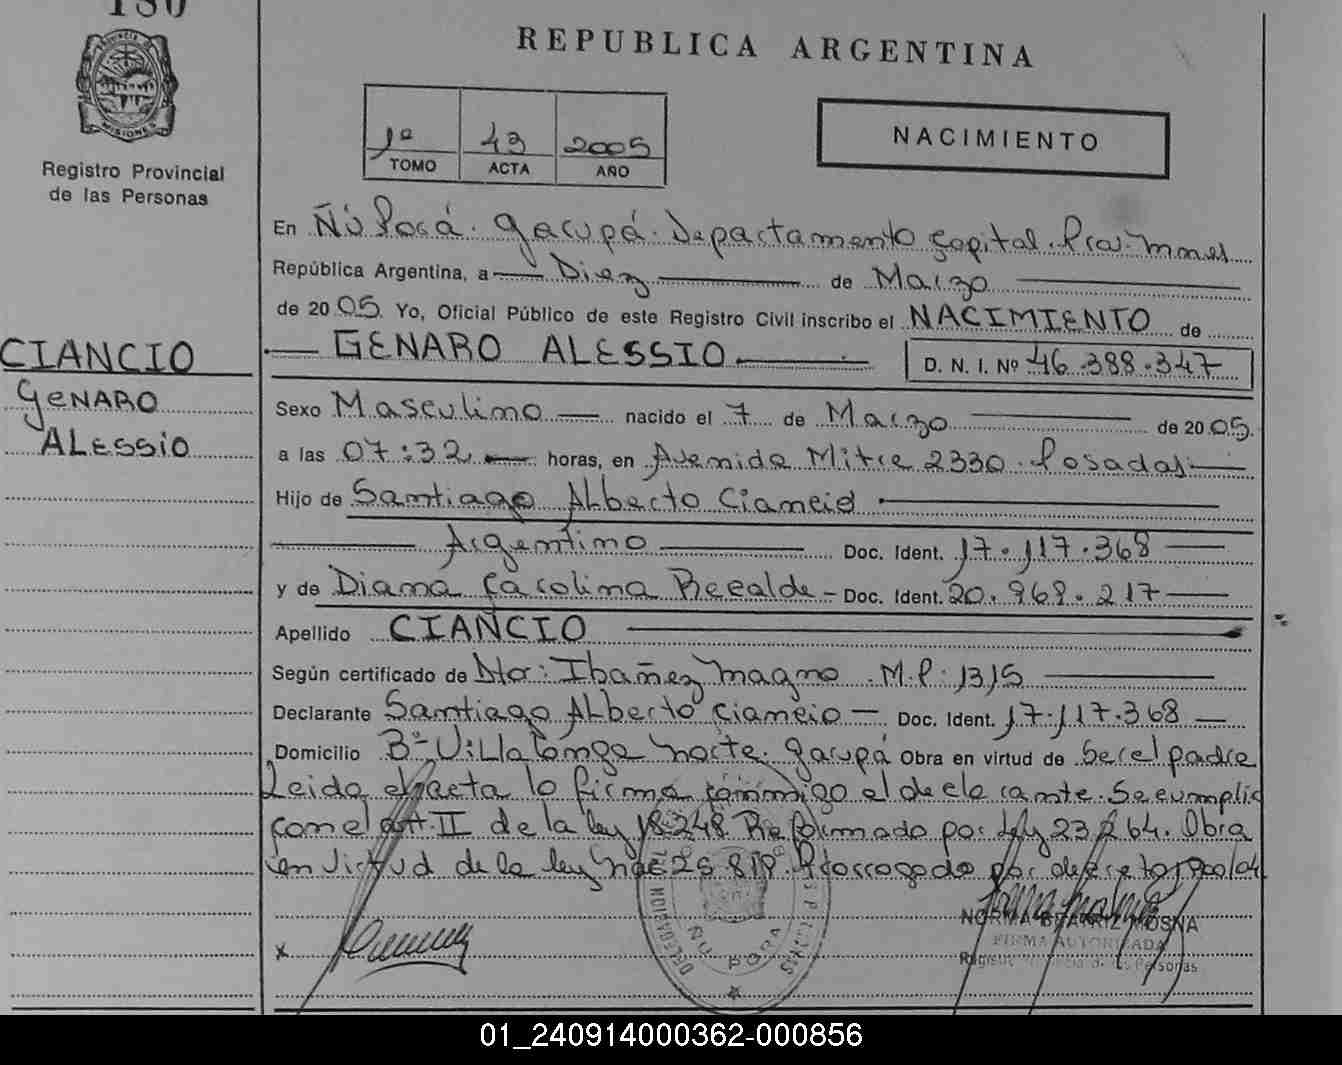 180
REPUBLICA ARGENTINA
PROVINCIA DE MISIONES
Registro Provincial
de las Personas
1º 43 2005
TOMO ACTA AÑO
NACIMIENTO
En Ñú Porá. Garupá. Departamento Capital. Prov. Mnes
República Argentina, a Diez de Marzo
de 2005. Yo, Oficial Público de este Registro Civil inscribo el NACIMIENTO de
GENARO ALESSIO D. N. I. Nº 46.388.347
CIANCIO
GENARO
ALESSIO
Sexo Masculino nacido el 7 de Marzo de 2005.
a las 07:32 horas, en Avenida Mitre 2330. Posadas
Hijo de Santiago Alberto Ciancio
Argentino Doc. Ident. 17.117.368
y de Diana Carolina Doc. Ident. 20.968.217
Apellido CIANCIO
Según certificado de Dto: Ibañez Magno. M.P: 1315
Declarante Santiago Alberto Ciancio Doc. Ident. 17.117.368
Domicilio Bº Villalonga Norte. Garupá Obra en virtud de Ser el padre
Leida el acta lo firma conmigo el declarante. Se cumplio
con el art. II de la ley 18248 Reformado por Ley 23264. Obra
en virtud de la ley Nac 25.819. Prorrogado por decreto
ÑU PORA
DELEGACION
NORMA BEATRIZ MOSNA
FIRMA AUTORIZADA
Registro Provincial de las Personas
01_240914000362-000856